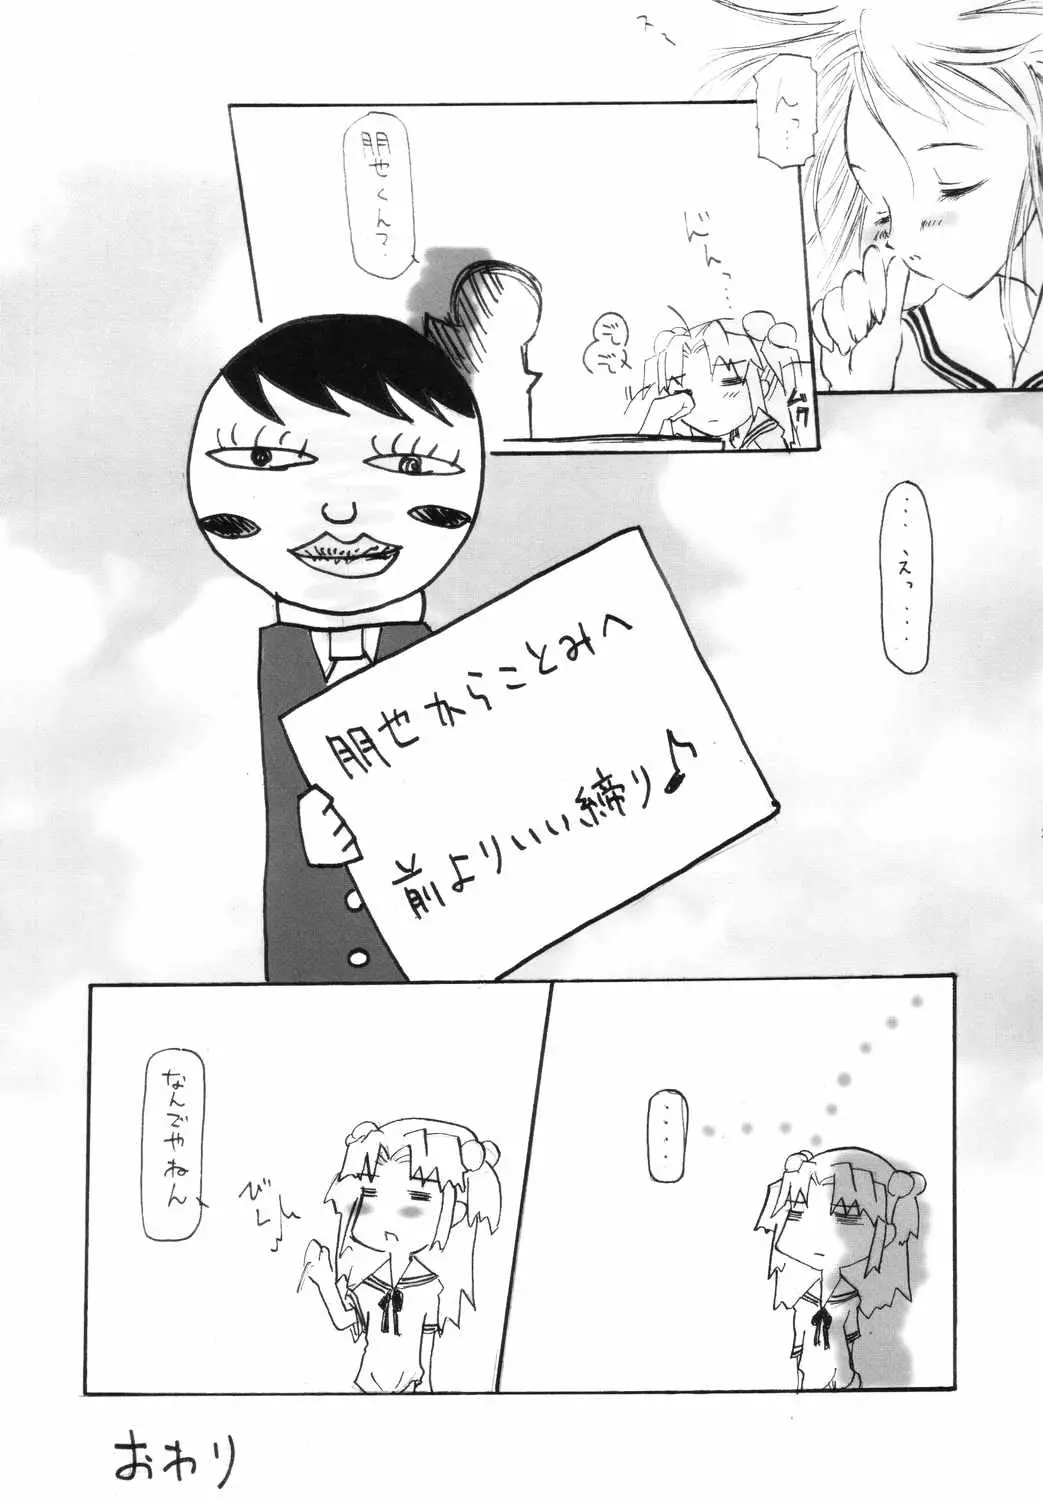 スー
んっ…
じんっ……
ぞぞ
ムク
朋也くん?
……えっ……
朋也からことみへ
前よりいい締り♪
……
なんでやねん
びしっ
おわり